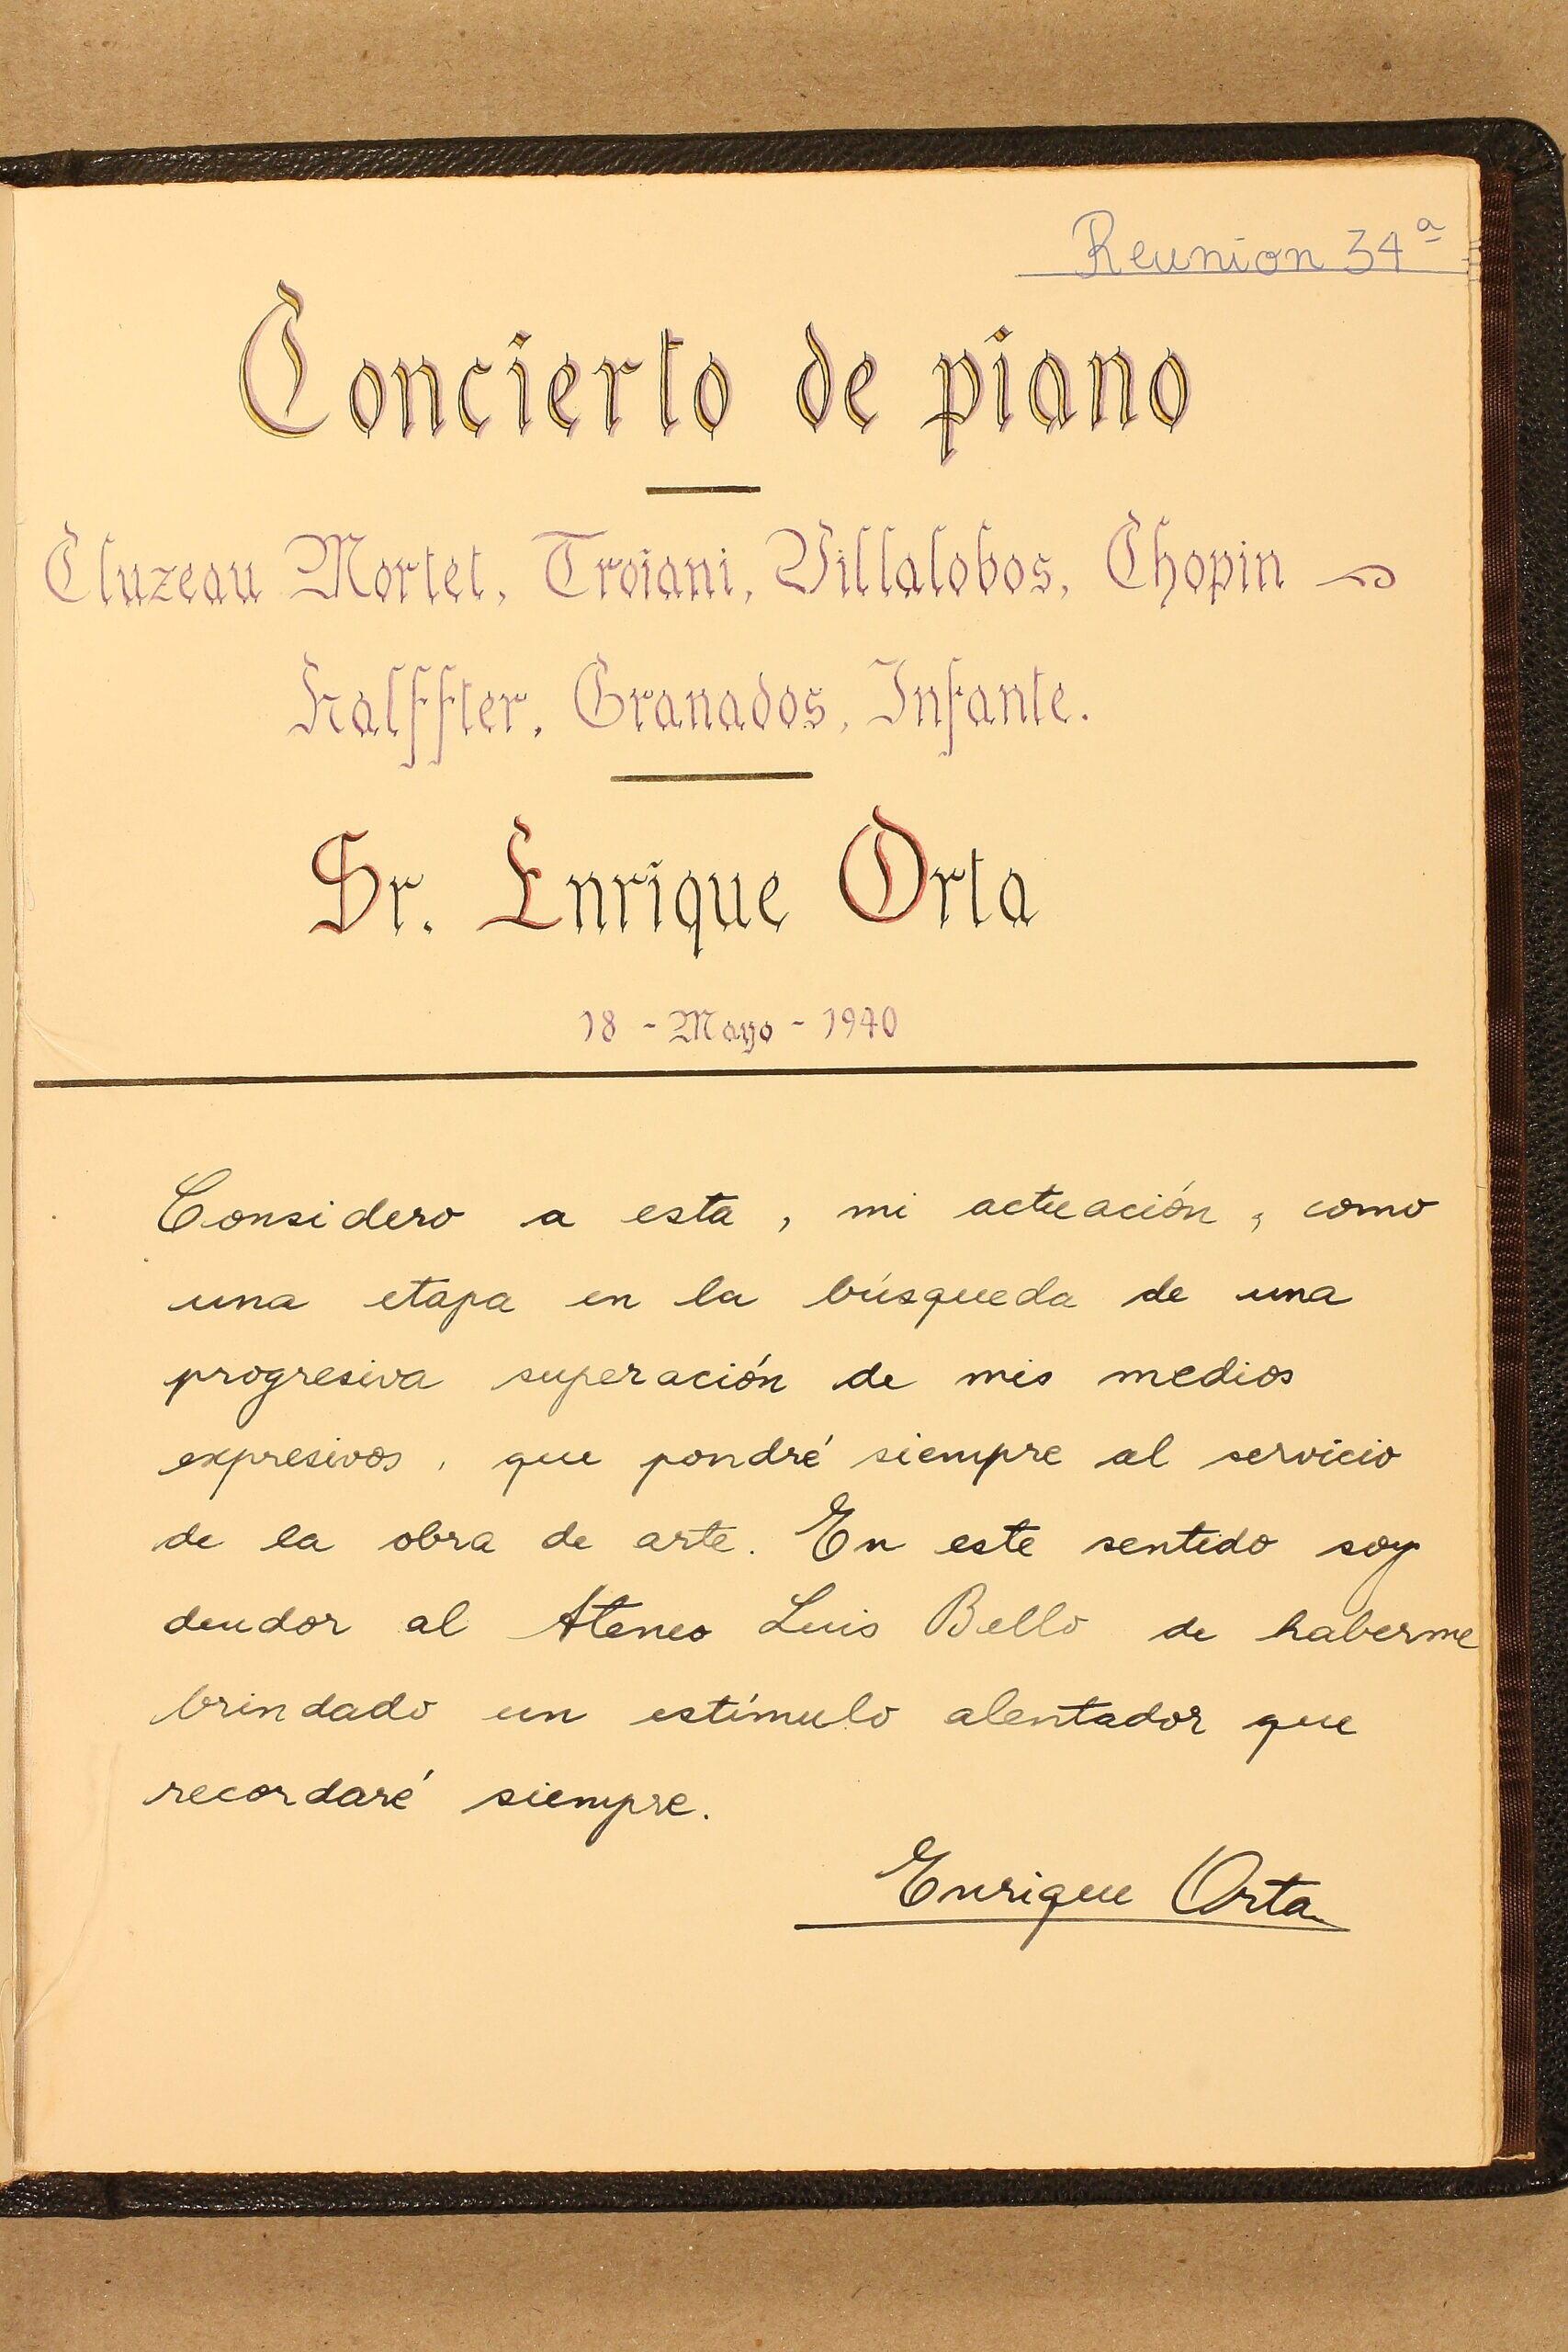 Reunion 34ª
Concierto de piano
Cluzeau Mortet, Troiani, Villalobos, Chopin
Halffter, Granados, Infante.
Sr. Enrique Orta
18 - Mayo - 1940
Considero a esta, mi actuación, como
una etapa en la búsqueda de una
progresiva superación de mis medios
expresivos, que pondré siempre al servicio
de la obra de arte. En este sentido soy
deudor al Ateneo Luis Bello de haberme
brindado un estímulo alentador que
recordaré siempre.
Enrique Orta